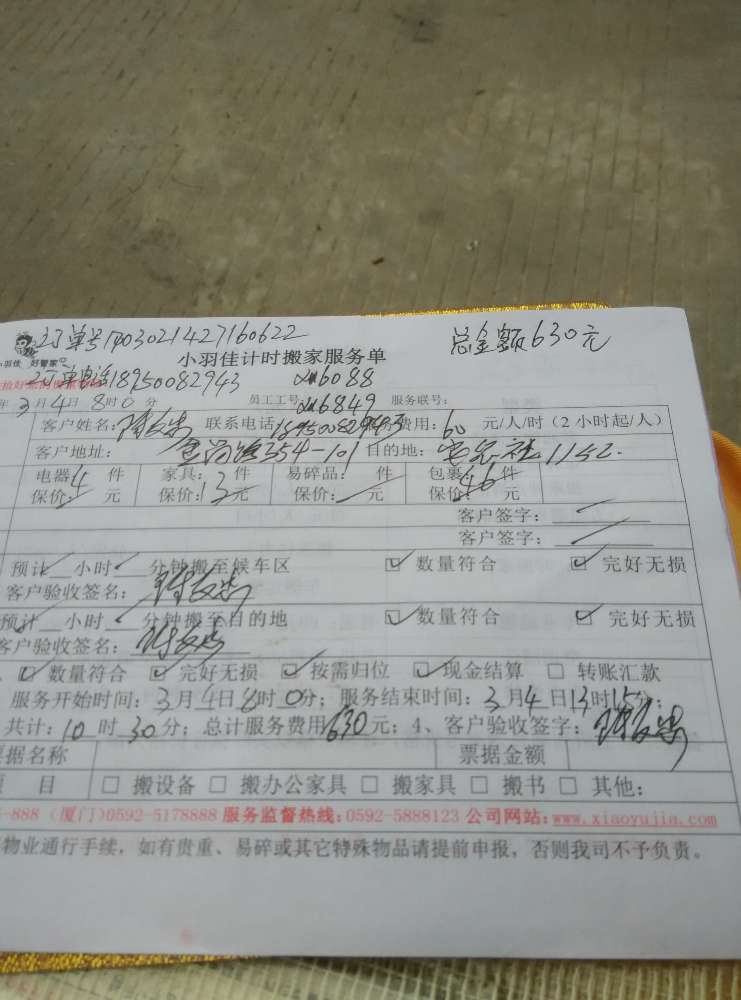 订单号170302142716 0622 总金额630元
小羽佳 好管家
小羽佳计时搬家服务单
订单电话18950082943 xm6088
年3月4日8时0分 员工工号:xm6849 服务联号:
客户姓名: 联系电话:18950082943 费用:60 元/人/时(2 小时起/人)
客户地址: 354-101 目的地:
电器:4 件 家具: 件 易碎品: 件 包裹: 件
保价: 元 保价:3元 保价: 元 保价:46元
客户签字:
客户签字:
预计 小时 分钟搬至候车区 ☑ 数量符合 ☑ 完好无损
客户验收签名:
预计 小时 分钟搬至目的地 ☑ 数量符合 ☑ 完好无损
客户验收签名:
☑ 数量符合 ☑ 完好无损 ☑ 按需归位 ☑ 现金结算 □ 转账汇款
服务开始时间:3月4日8时0分;服务结束时间:3月4日13时15分;
共计:10时30分;总计服务费用630元;4、客户验收签字:
票据名称 票据金额
项 目 □ 搬设备 □ 搬办公家具 □ 搬家具 □ 搬书 □ 其他:
-888 (厦门)0592-5178888 服务监督热线:0592-5888123 公司网站:www.xiaoyujia.com
物业通行手续,如有贵重、易碎或其它特殊物品请提前申报,否则我司不予负责。